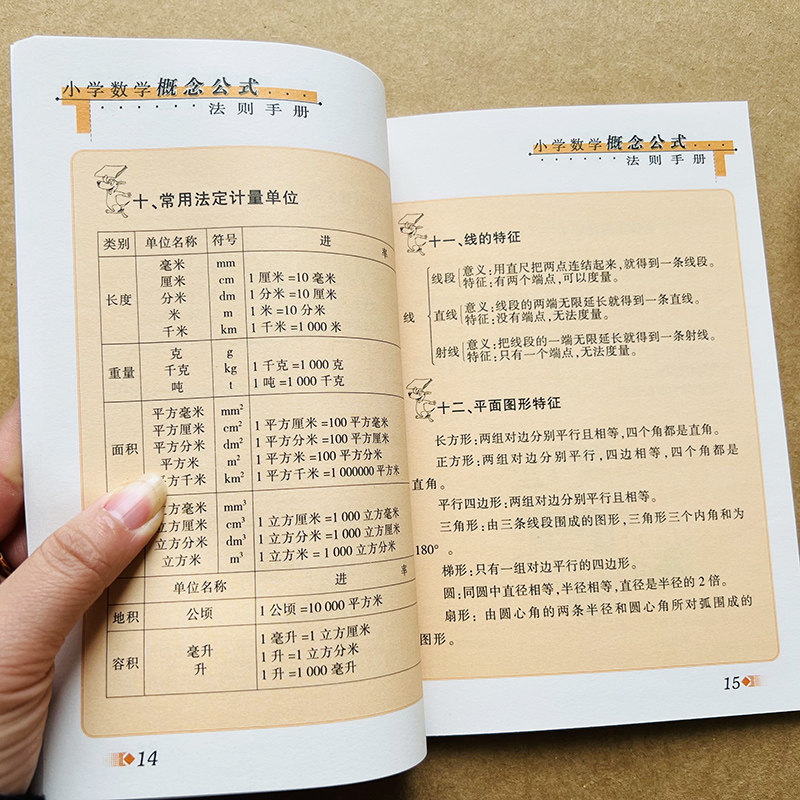 小学数学概念公式
法则手册
十、常用法定计量单位
类别 单位名称 符号 进 率
长度
毫米 mm
厘米 cm 1厘米=10毫米
分米 dm 1分米=10厘米
米 m 1米=10分米
千米 km 1千米=1000米
重量
克 g
千克 kg 1千克=1000克
吨 t 1吨=1000千克
面积
平方毫米 mm²
平方厘米 cm² 1平方厘米=100平方毫米
平方分米 dm² 1平方分米=100平方厘米
平方米 m² 1平方米=100平方分米
方千米 km² 1平方千米=1000000平方米
方毫米 mm³
立方厘米 cm³ 1立方厘米=1000立方毫米
立方分米 dm³ 1立方分米=1000立方厘米
立方米 m³ 1立方米=1000立方分米
单位名称 进 率
地积 公顷 1公顷=10000平方米
容积
毫升 1毫升=1立方厘米
升 1升=1立方分米
1升=1000毫升
14
小学数学概念公式
法则手册
十一、线的特征
线
线段 意义:用直尺把两点连结起来,就得到一条线段。
特征:有两个端点,可以度量。
直线 意义:线段的两端无限延长就得到一条直线。
特征:没有端点,无法度量。
射线 意义:把线段的一端无限延长就得到一条射线。
特征:只有一个端点,无法度量。
十二、平面图形特征
长方形:两组对边分别平行且相等,四个角都是直角。
正方形:两组对边分别平行,四边相等,四个角都是
直角。
平行四边形:两组对边分别平行且相等。
三角形:由三条线段围成的图形,三角形三个内角和为
180°。
梯形:只有一组对边平行的四边形。
圆:同圆中直径相等,半径相等,直径是半径的2倍。
扇形:由圆心角的两条半径和圆心角所对弧围成的
图形。
15